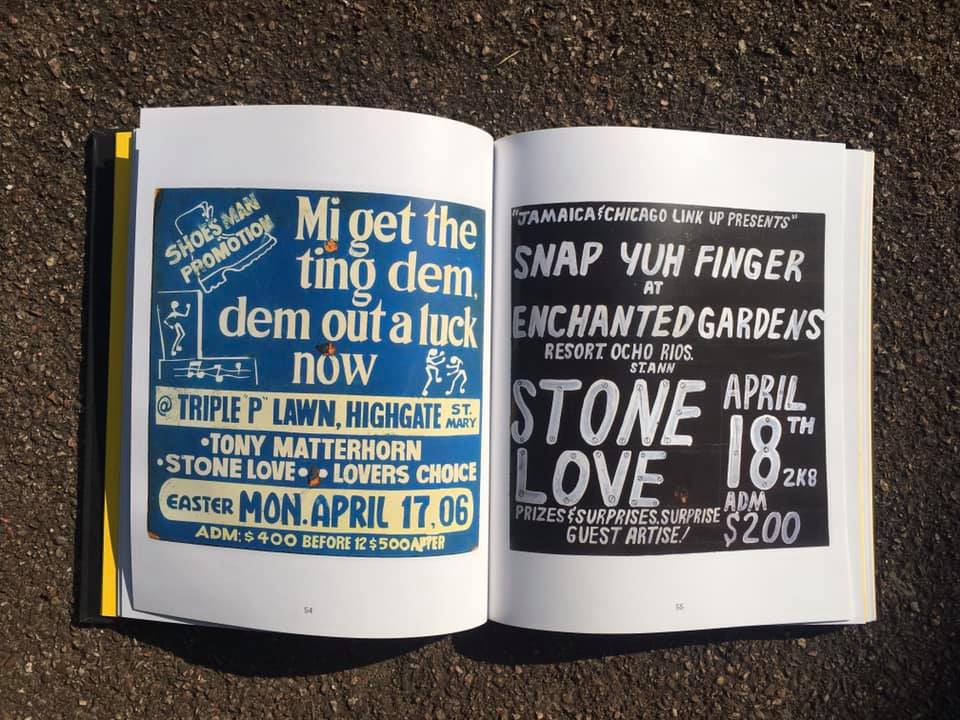 SHOES MAN
PROMOTION
Mi get the
ting dem,
dem out a luck
now
@ TRIPLE "P" LAWN, HIGHGATE ST. MARY
•TONY MATTERHORN
•STONE LOVE• •LOVERS CHOICE
EASTER MON. APRIL 17, 06
ADM: $400 BEFORE 12 $500 AFTER
54
"JAMAICA & CHICAGO LINK UP PRESENTS"
SNAP YUH FINGER
AT
ENCHANTED GARDENS
RESORT. OCHO RIOS.
ST. ANN
STONE
LOVE
APRIL
18TH
2K8
ADM
$200
PRIZES & SURPRISES. SURPRISE
GUEST ARTISE!
55